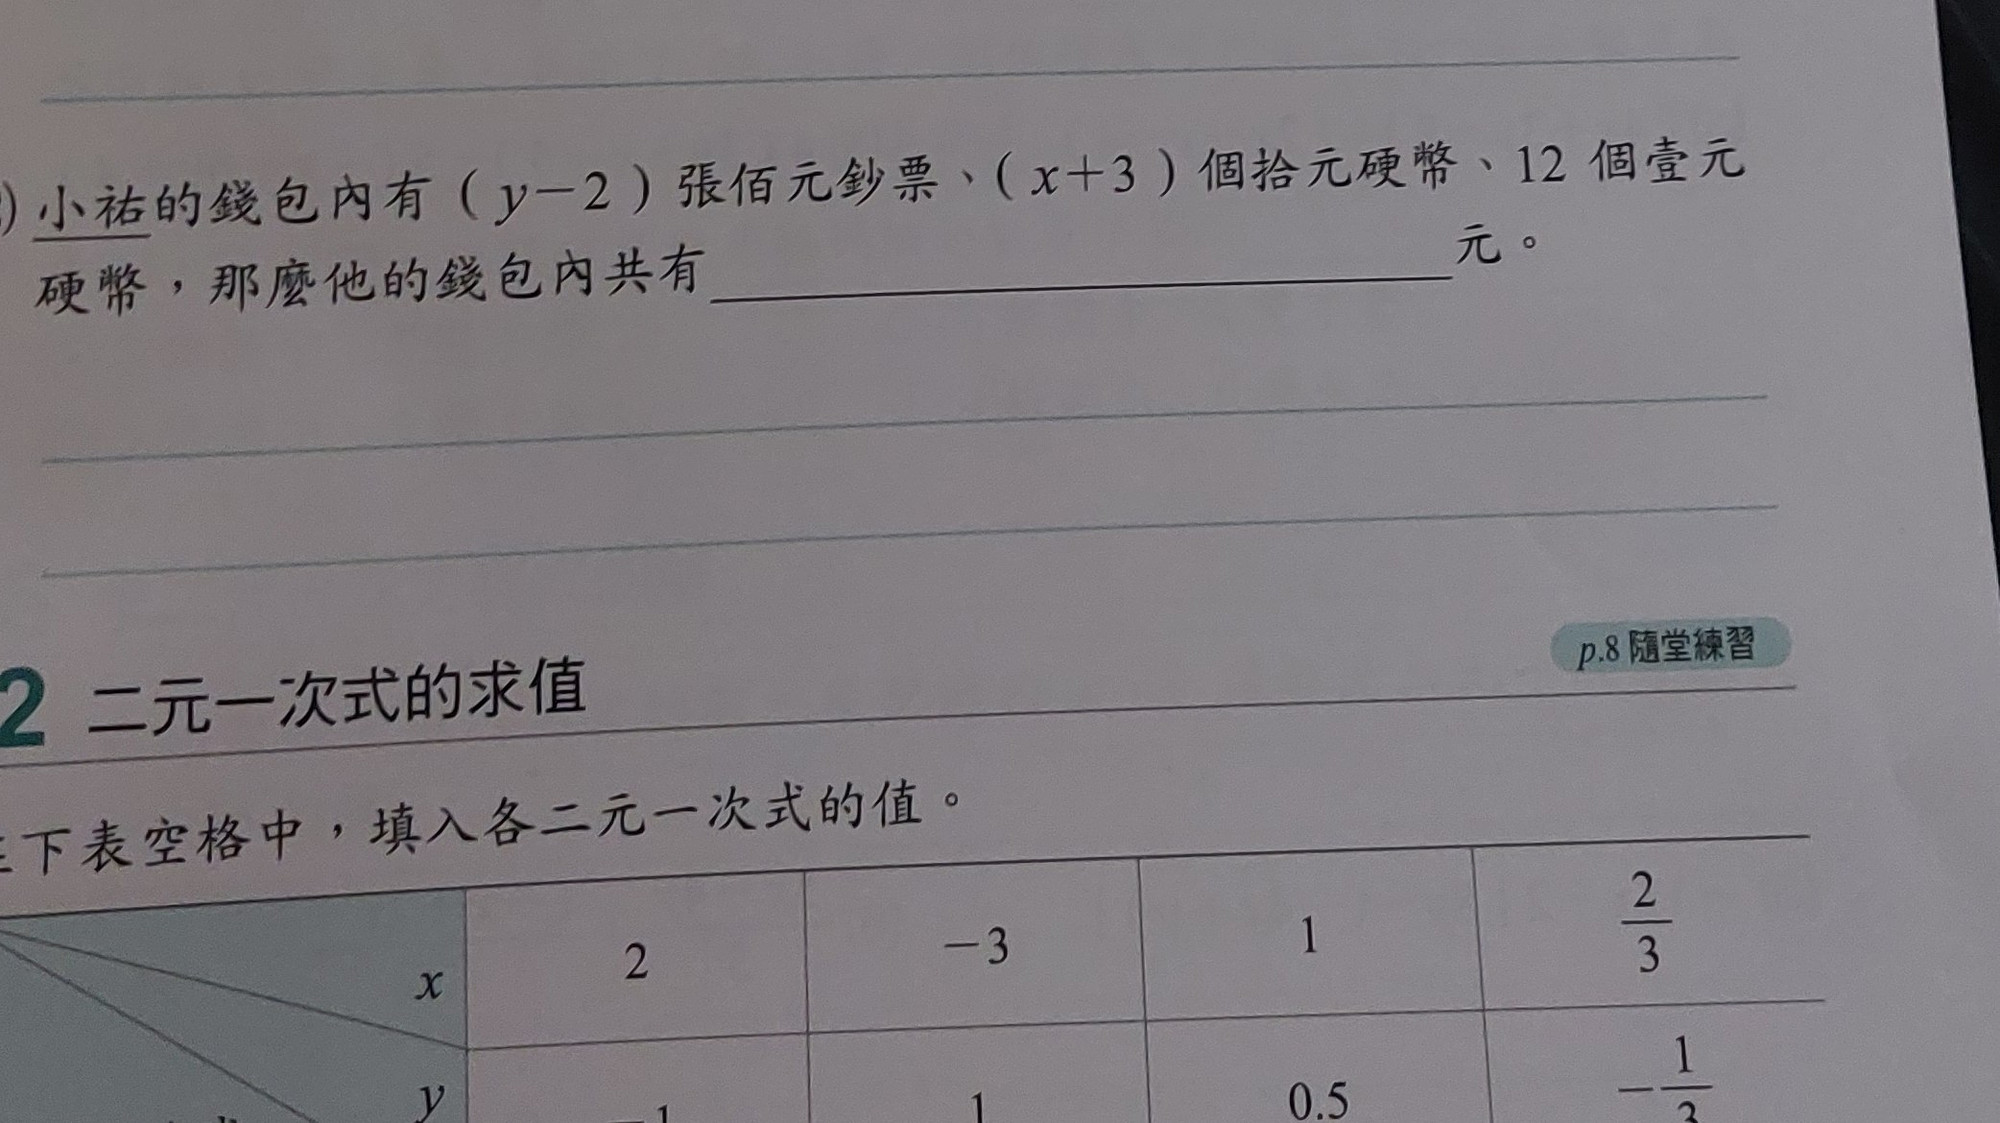 小祐的錢包內有（y－2）張佰元鈔票、（x＋3）個拾元硬幣、12 個壹元
硬幣，那麼他的錢包內共有＿＿＿＿＿＿＿＿元。
p.8 隨堂練習
2 二元一次式的求值
下表空格中，填入各二元一次式的值。
x 2 －3 1 2/3
y －1 1 0.5 －1/3